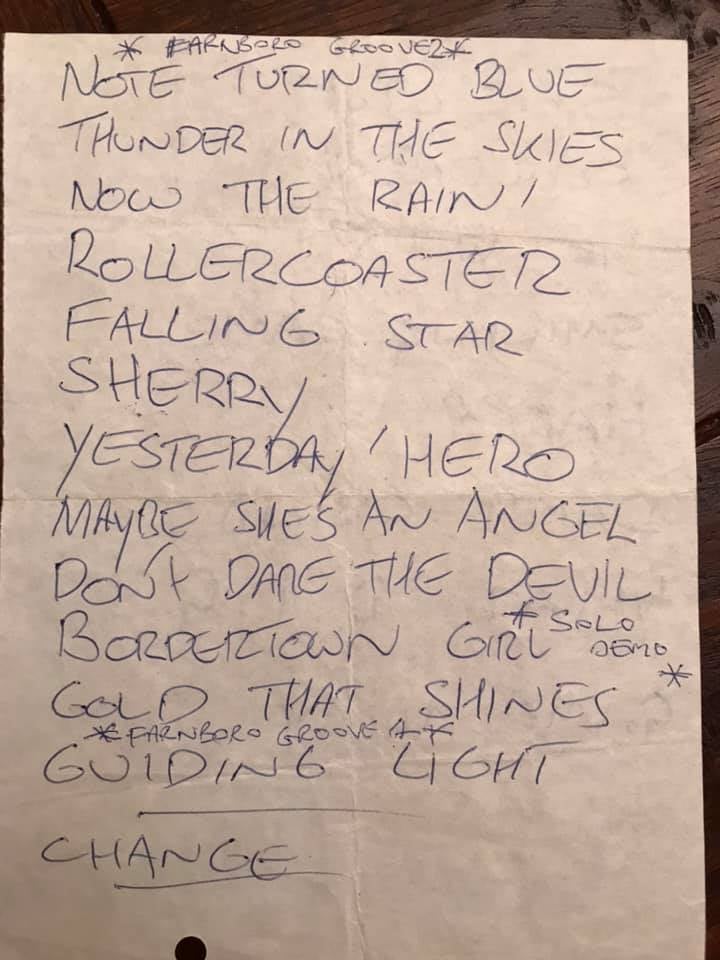 * FARNBORO GROOVE 2 *
NOTE TURNED BLUE
THUNDER IN THE SKIES
NOW THE RAIN'
ROLLERCOASTER
FALLING STAR
SHERRY
YESTERDAY'HERO
MAYBE SHE'S AN ANGEL
DON'T DARE THE DEVIL
BORDERTOWN GIRL * SOLO DEMO *
GOLD THAT SHINES
* FARNBORO GROOVE 1 *
GUIDING LIGHT
CHANGE